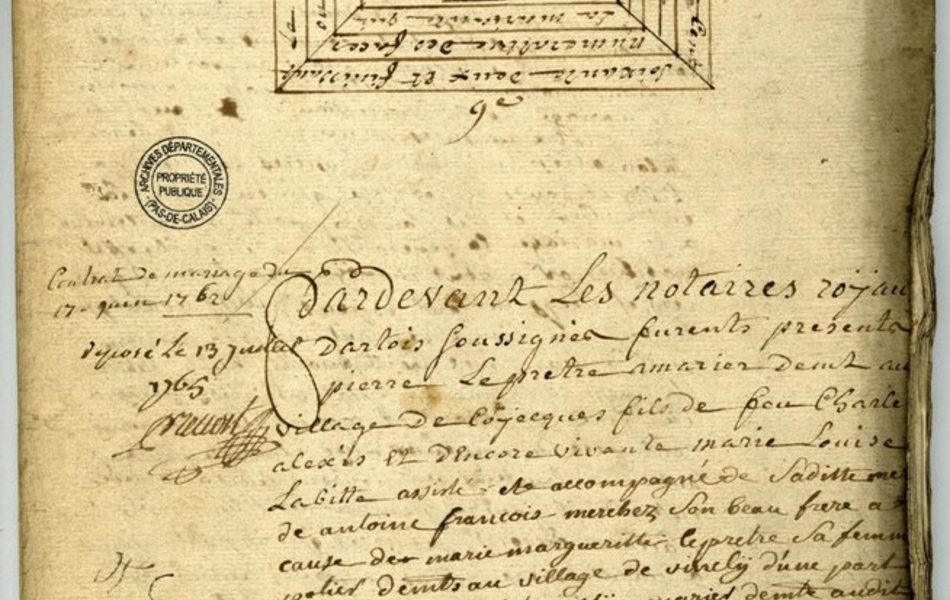 Soixante deux et finissant
numerative des faces
la
qui
9e
ARCHIVES DÉPARTEMENTALES
(PAS-DE-CALAIS)
PROPRIÉTÉ
PUBLIQUE
Contrat de mariage du
17 juin 1762
deposé Le 13 Juillet
1765
Pardevant Les notaires roÿau
Dartois soussignés furents presents
pierre Lepretre amarier demt au
village de Coÿecques fils de feu Charle
alexis Et D'Encore vivante marie Louise
Labitte assisté et accompagné de Saditte me
de antoine francois merchez son beau frere a
cause de marie margueritte lepretre sa femm
demts au village de vincly d'une part
marier demte audit